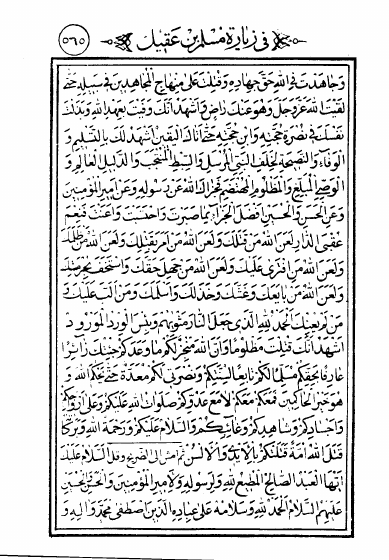 في زيارة مسلم بن عقيل ٥٦٥
وجاهدت في الله حق جهاده وقتلت على منهاج المجاهدين في سبيله حتى
لقيت الله عز وجل وهو عنك راض واشهد انك وفيت بعهد الله وبذلت
نفسك في نصرة حجته وابن حجته حتى اتاك اليقين اشهد لك بالتسليم و
الوفاء والنصيحة لخلف النبي المرسل والسبط المنتجب والدليل العالم و
الوصي المبلغ والمظلوم المهتضم فجزاك الله عن رسوله وعن امير المؤمنين
وعن الحسن والحسين افضل الجزاء بما صبرت واحتسبت واعنت فنعم
عقبى الدار لعن الله من قتلك ولعن الله من امر بقتلك ولعن الله من ظلمك
ولعن الله من افترى عليك ولعن الله من جهل حقك واستخف بحرمتك
ولعن الله من بايعك وغشك وخذلك واسلمك ومن الب عليك و
من لم يعنك الحمد لله الذي جعل النار مثويهم وبئس الورد المورود
اشهد انك قتلت مظلوما وان الله منجز لكم ما وعدكم جئتك زائرا
عارفا بحقكم مسلما لكم تابعا لسنتكم ونصرتي لكم معدة حتى يحكم الله و
هو خير الحاكمين فمعكم معكم لا مع عدوكم صلوات الله عليكم وعلى ارواحكم
واجسادكم وشاهدكم وغائبكم والسلام عليكم ورحمة الله وبركاته
قتل الله امة قتلتكم بالايدي والالسن ثم امض الى الضريح وقل السلام عليك
ايها العبد الصالح المطيع لله ولرسوله ولامير المؤمنين والحسن والحسين
عليهم السلام الحمد لله وسلام على عباده الذين اصطفى محمد واله و